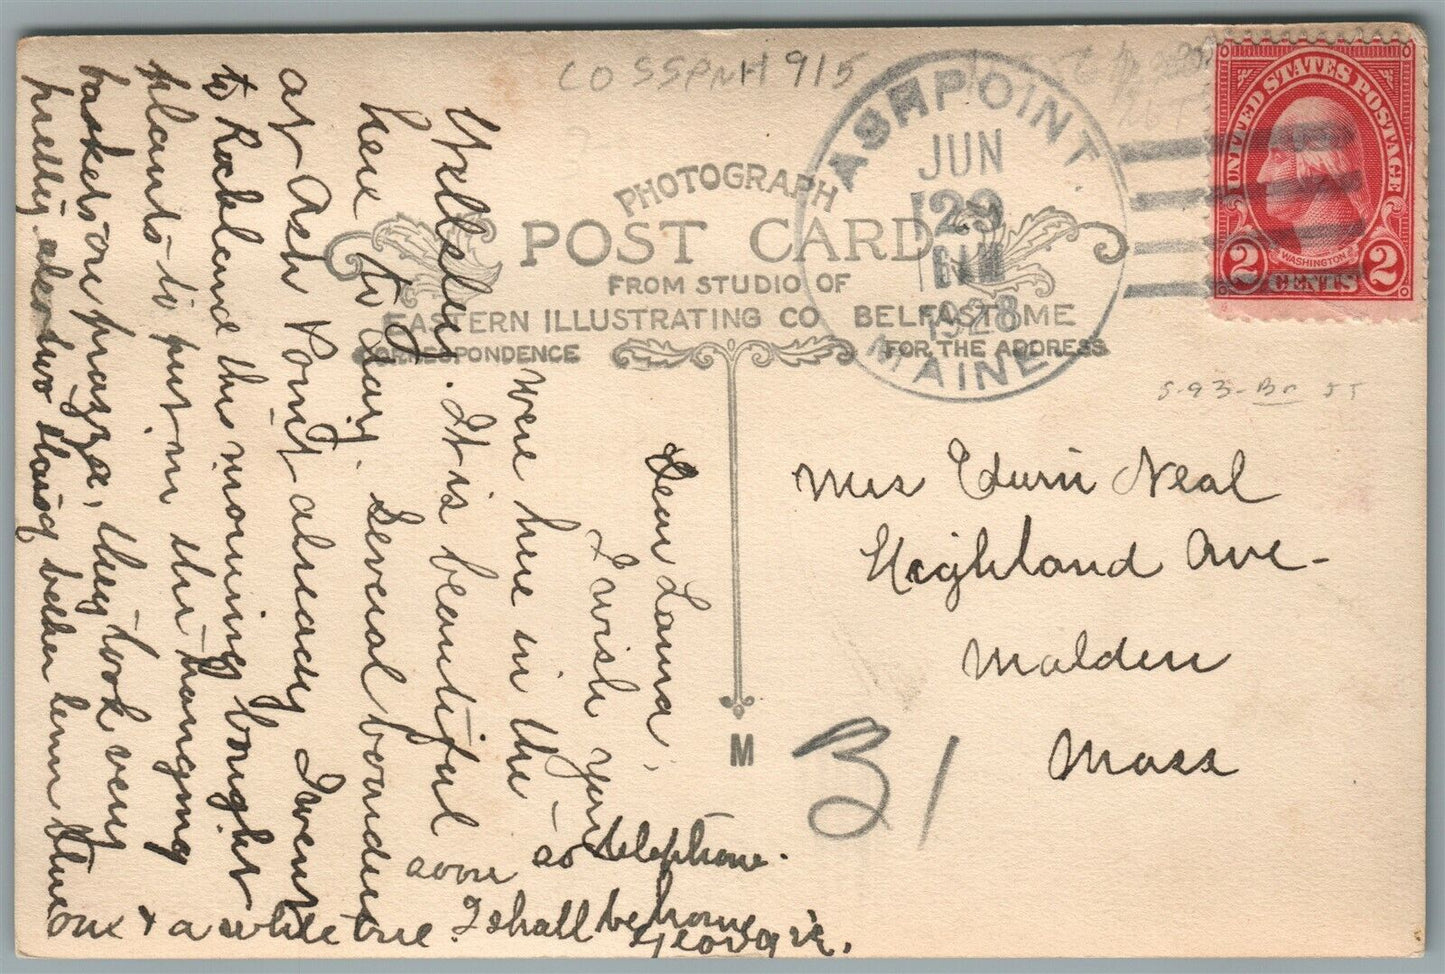 CO SSPNH 915
PHOTOGRAPH
POST CARD
FROM STUDIO OF
EASTERN ILLUSTRATING CO BELFAST ME
CORRESPONDENCE
FOR THE ADDRESS
M
ASH POINT
JUN
29
6 AM
1928
MAINE
UNITED STATES POSTAGE
WASHINGTON
2 CENTS 2
S-93-Bn 55
Mrs Edwin Neal
Highland Ave-
Malden
Mass
31
Dear Lama,
I wish you
were here in the
yellsley. It is beautiful
here to day. Several boarders
at Ash Point already I went
to Rockland this morning bought
plants to put in the hanging
baskets on piazza, they look very
pretty also two slaig better lemn
one & a white one. I shall be home
soon so telephone.
Georgie.